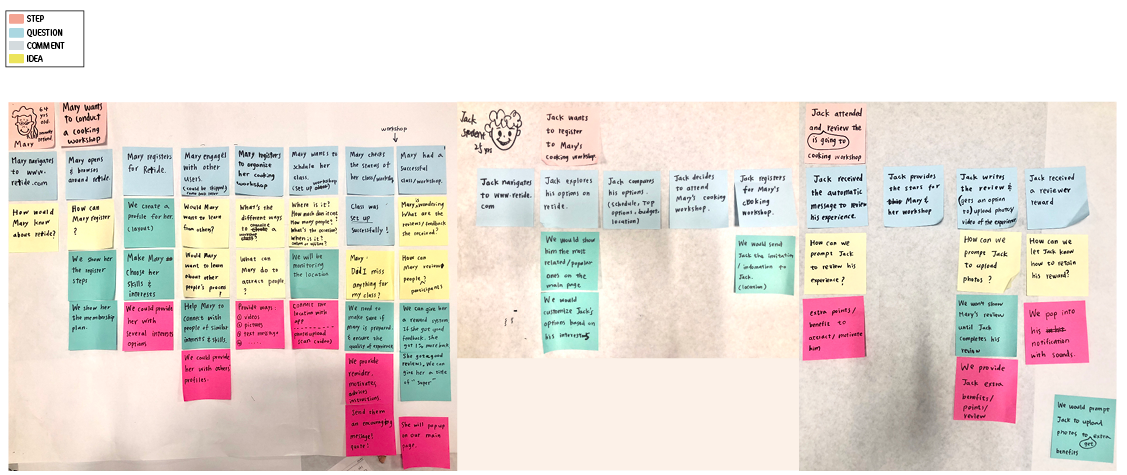 STEP
QUESTION
COMMENT
IDEA
64
yrs
old
Mary
Mary wants
to conduct
a cooking
workshop
workshop
Mary navigates
to www.
retide.com
Mary opens
& browses
around retide.
Mary registers
for Retide.
Mary engages
with other
users.
Mary registers
to organize
her cooking
workshop
Mary wants to
her
class.
(set up
Mary checks
the status of
her class/
Mary had a
successful
class/workshop.
How would
Mary know
about retide?
How can
Mary register
?
We create a
profile for her.
(layout)
Would Mary
want to learn
from other?
What's the
different ways
to
class?
Where is it?
How much does it cost
How many people?
What's the
When is it?
Class was
set up
successfully!
Mary wondering
What are the
reviews/feedback
she received?
We show her
the register
steps
Make Mary
choose her
skills &
interests
Would Mary
want to learn
about other
people's process
?
What can
Mary do to
attract people
?
We will be
monitoring
the location
Mary-
Did I miss
anything for
my class?
How can
Mary review
people?
participants
We show her
the membership
plan.
We could provide
her with
several interests
options
Help Mary to
connect with
people of similar
interests & skills.
Provide ways:
videos
pictures
text message
location with
app
We need to
make sure if
Mary is prepared.
& ensure the
quality of experience
We can give her
a reward system
If she got good
feedback, she
We could provide
her with others'
profiles.
We provide
reminder,
motivates,
advices
instructions.
She got good
reviews, we can
give her a title
of "super"
Send them
an encouraging
message/
quote!
She will pop up
in our main
page.
Jack
student
25 yrs
Jack wants
to register
to Mary's
cooking workshop.
Jack navigates
to www.retide.
com
Jack explores
his options on
retide.
Jack compares
his options.
(schedule, top
options, budget,
location)
Jack decides
to attend
Mary's cooking
workshop.
Jack registers
for Mary's
cooking
workshop.
We would show
him the most
related/popular
ones on the
main page
We would
customize Jack's
options based on
his interests
We would send
Jack the invitation
/ information to
Jack.
(location)
Jack attended
and review the
is going to
cooking workshop
Jack received
the automatic
message to review
his experience.
Jack provides
the stars for
Mary &
her workshop
Jack writes
the review &
(gets an option
to) upload photos/
video of the experience
Jack received
a reviewer
reward
How can we
prompt Jack
to review his
experience?
How can we
prompt Jack
to upload
photos?
How can we
let Jack know
how to retain
his reward?
extra points/
benefit to
attract/motivate
him
We won't show
Mary's review
until Jack
completes his
review
We pop into
his
notification
with sounds.
We provide
Jack extra
benefits/
points/
review
We would prompt
Jack to upload
photos to extra
get
benefits